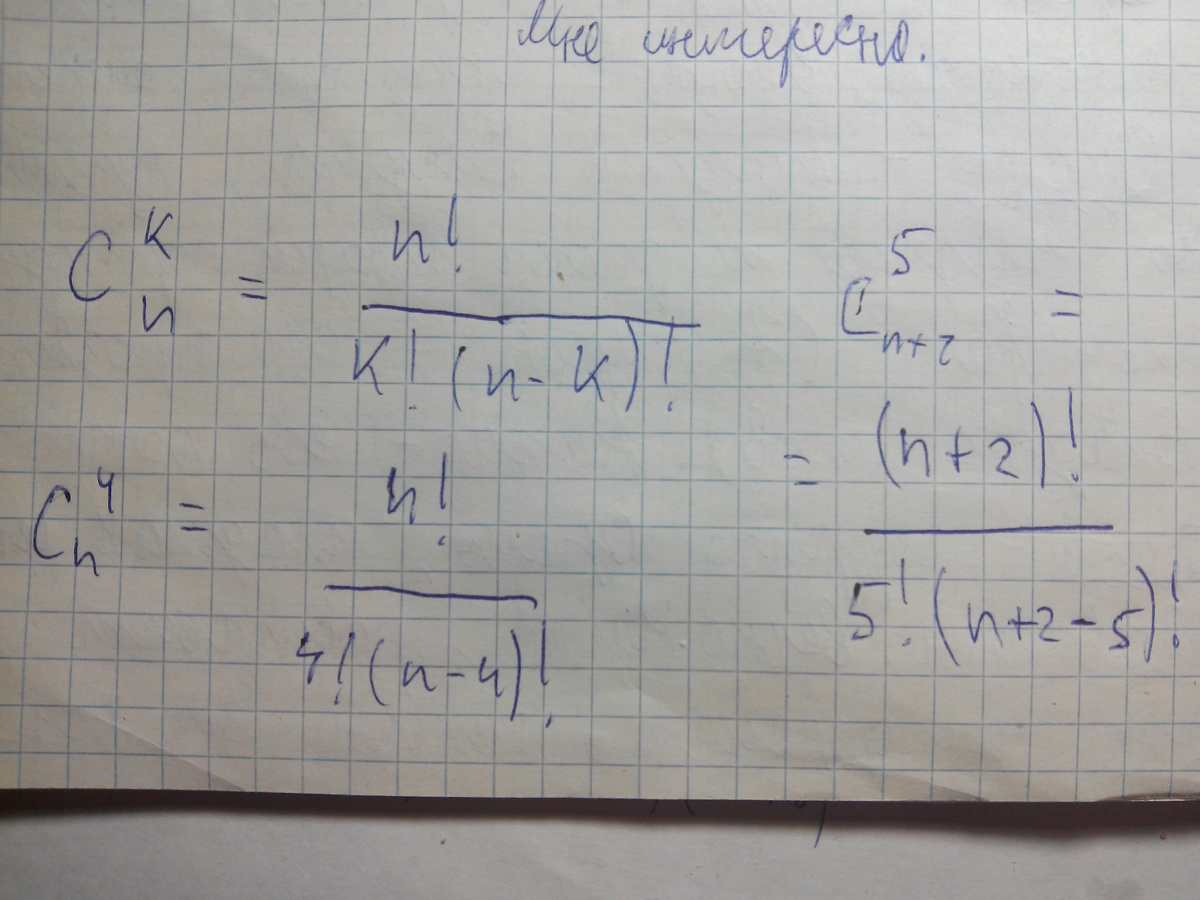 Мне интересно.
C_n^k = n! / k!(n-k)!
C_{n+2}^5 =
= (n+2)! / 5!(n+2-5)!
C_n^4 = n! / 4!(n-4)!